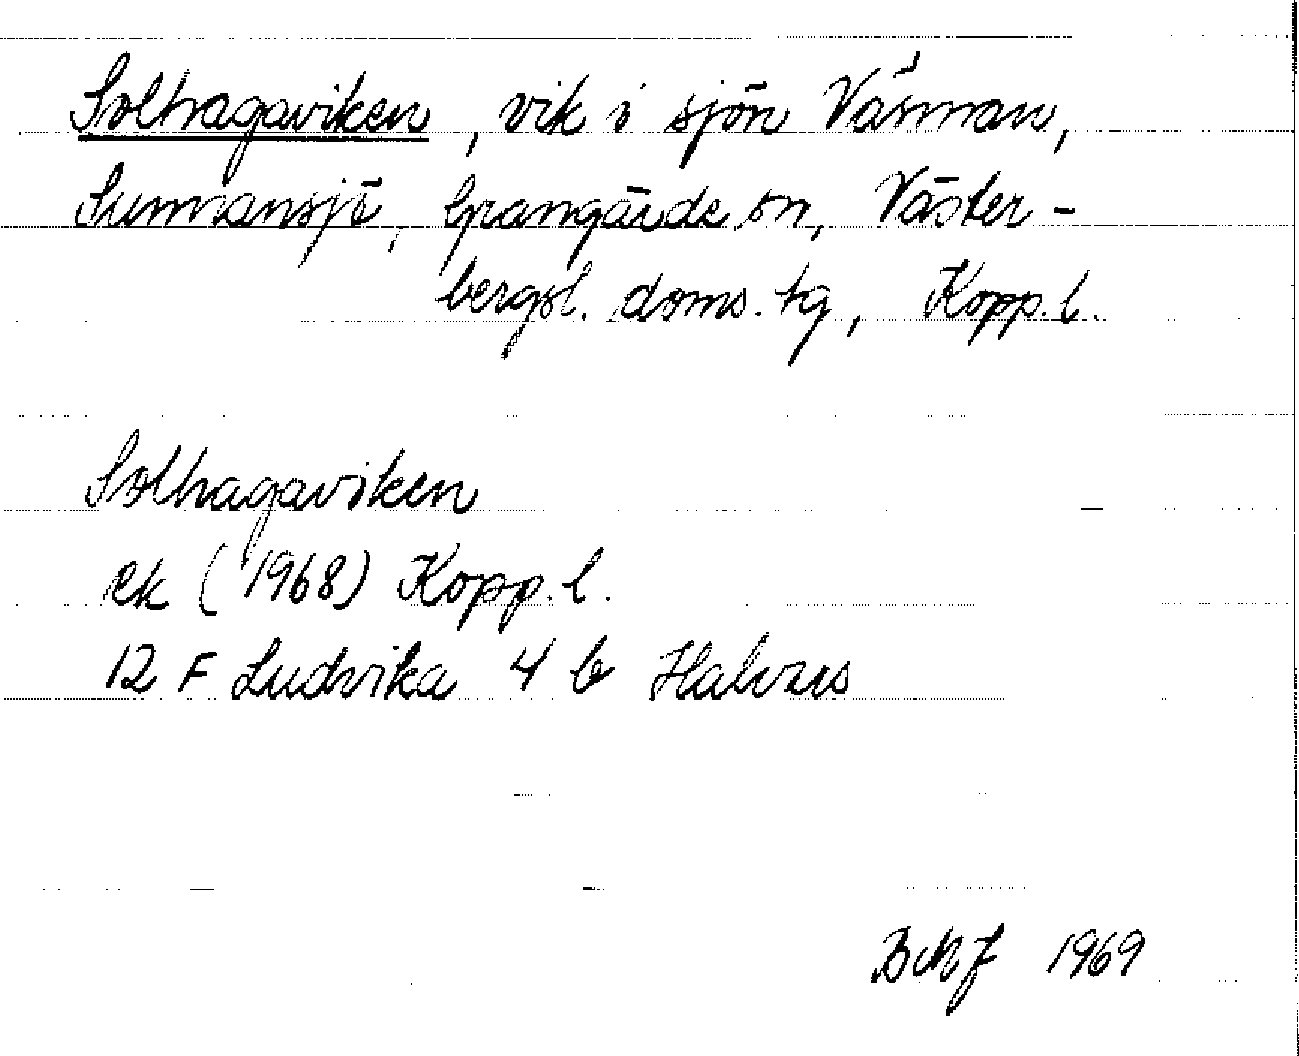 Solhagaviken, vik i sjön Väsman,
Sunnansjö, Grangärde sn, Väster-
bergsl. doms. tg, Kopp. l.
Solhagaviken
ek (1968) Kopp. l.
12 F Ludvika 4 b Halvars
1969